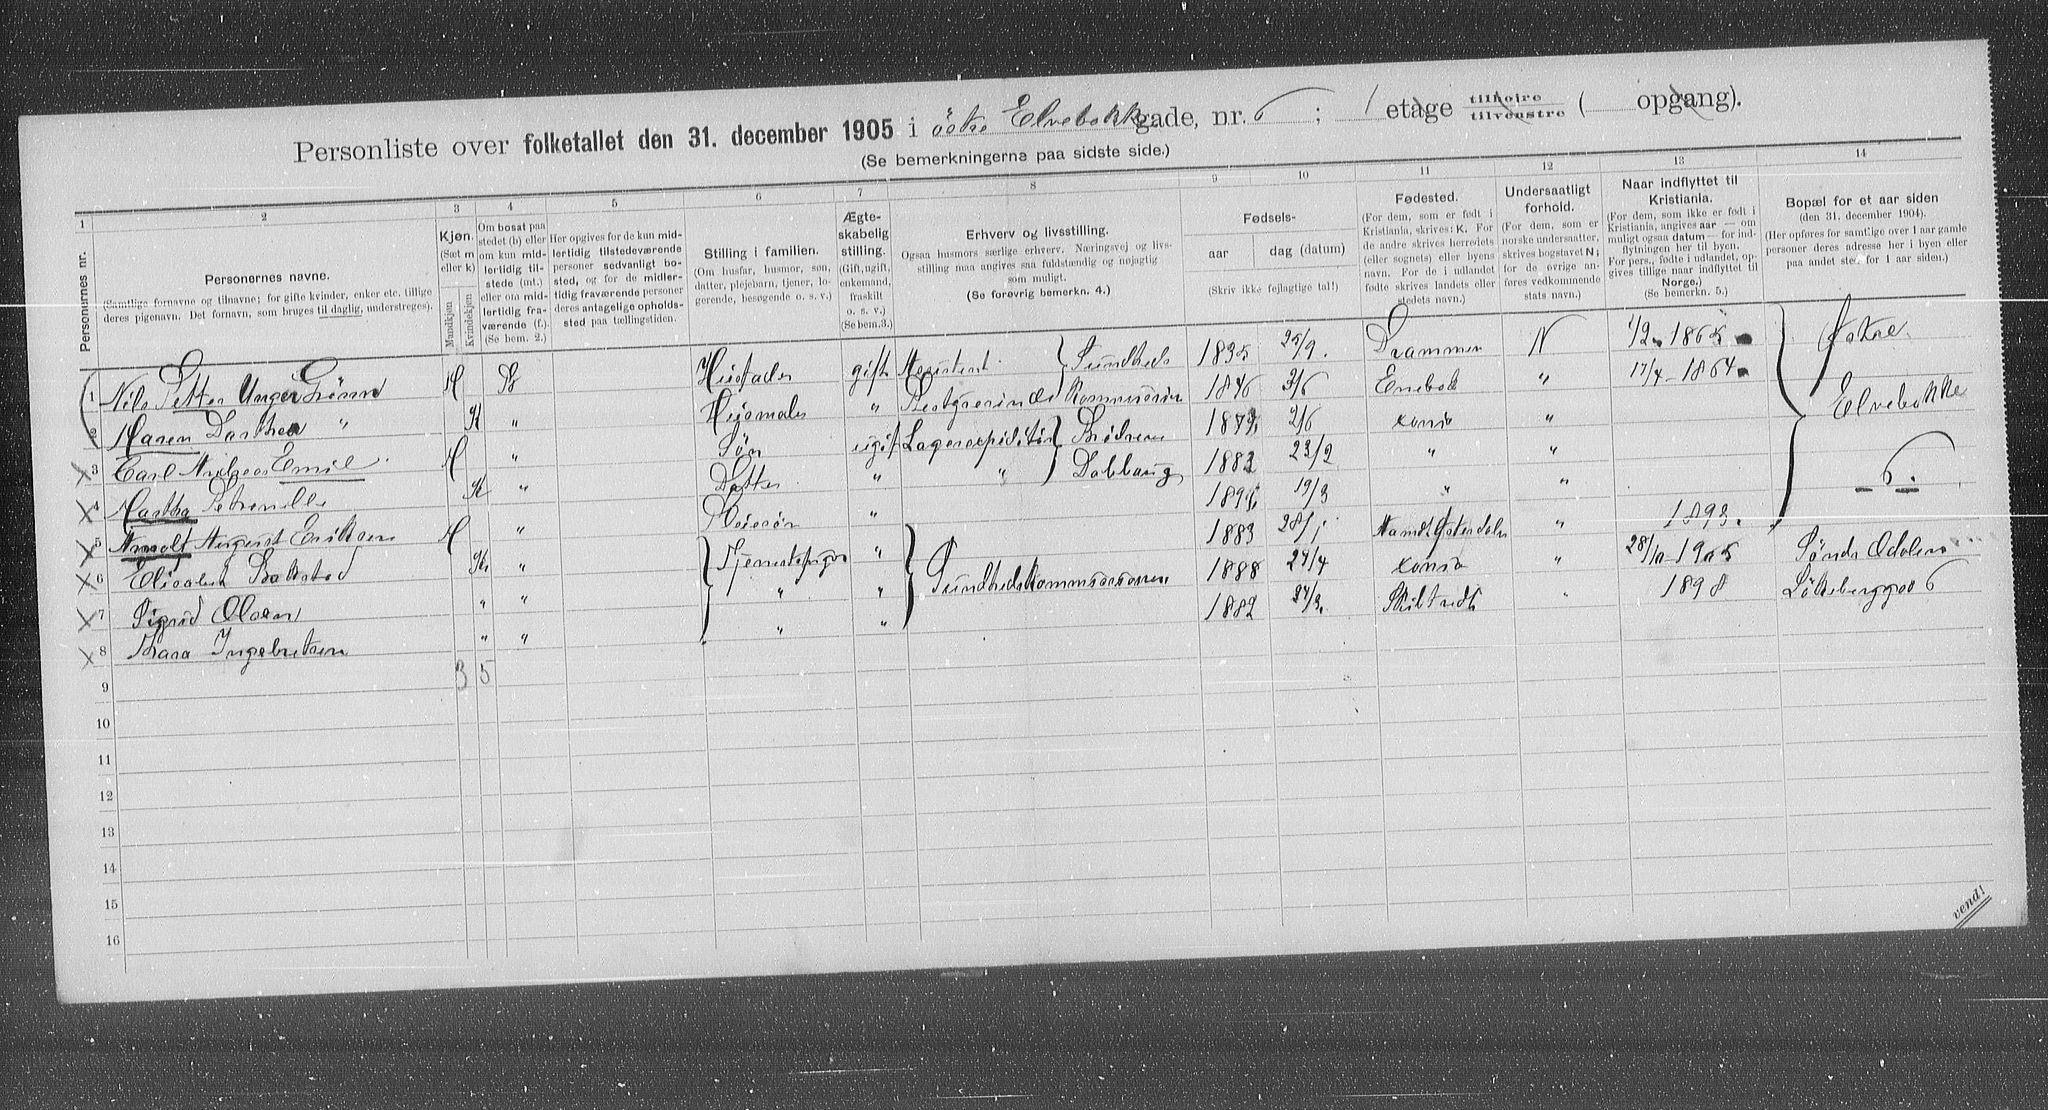 Personliste over folketallet den 31. december 1905 i östre Elvebakk gade, nr. 6 ; 1 etage tilhøire tilvenstre ( opgang).
(Se bemerkningerne paa sidste side.)
1 2 3 4 5 6 7 8 9 10 11 12 13 14
Personernes nr.
Personernes navne.
(Samtlige fornavne og tilnavne; for gifte kvinder, enker etc. tillige deres pigenavn. Det fornavn, som bruges til daglig, understreges).
Kjøn.
(Sæt m eller k)
Mandkjøn
Kvindekjøn
Om bosat paa stedet (b) eller om kun midlertidig tilstede (mt.) eller om midlertidig fraværende (f.) (Se bem. 2.)
Her opgives for de kun midlertidig tilstedeværende personer sedvanligt bosted, og for de midlertidig fraværende personer deres antagelige opholdssted paa tællingstiden.
Stilling i familien.
(Om husfar, husmor, søn, datter, plejebarn, tjener, logerende, besøgende o. s. v.)
Ægteskabelig stilling.
(Gift, ugift, enkemand, fraskilt o. s. v.)
(Se bem. 3.)
Erhverv og livsstilling.
Ogsaa husmors særlige erhverv. Næringsvej og livsstilling maa angives saa fuldstændig og nøjagtig som muligt.
(Se forøvrig bemerkn. 4.)
Fødsels-
aar
dag (datum)
(Skriv ikke fejlagtige tal!)
Fødested.
(For dem, som er født i Kristiania, skrives: K. For de andre skrives herredets (eller sognets) eller byens navn. For de i udlandet fødte skrives landets eller stedets navn.)
Undersaatligt forhold.
(For dem, som er norske undersaatter, skrives bogstavet N; for de øvrige anføres vedkommende stats navn.)
Naar indflyttet til Kristiania.
(For dem, som ikke er født i Kristiania, angives aar — om muligt ogsaa datum — for indflytningen her til byen. For pers., fødte i udlandet, opgives tillige naar indflyttet til Norge.)
(Se bemerkn. 5.)
Bopæl for et aar siden
(den 31. december 1904).
(Her opføres for samtlige over 1 aar gamle personer deres adresse her i byen eller paa andet sted for 1 aar siden.)
1 Nils Petter Unger Grönn M B Husfader gift Assistent Sundheds 1835 25/9. Drammen N 1/2 1865 Østre
2 Maren Dorthea " K " Husmoder " Bestyrerinde Kommissionen 1846 3/6 Enebak " 17/4 - 1864 Elvebakke
3 Carl Andreas Emil M " Søn ugift Lagerexpeditør Brödrene 2/6 "
4 Martha Petronille K " Datter " " Dobloug 1883 23/2 " " 6.
5 Arnolt August Eriksen M " Pleiesön " 19/3 " "
6 Elisabet K " Tjenestepiger " Sundhedskommissionen 1883 28/1 " 1893.
7 Sigrid Olsen " " " " 1888 24/4 28/10 - 1905 Söndr Odalen
8 Ingebretsen " " " " 1882 " 1898 6
3 5
9
10
11
12
13
14
15
16
vend!